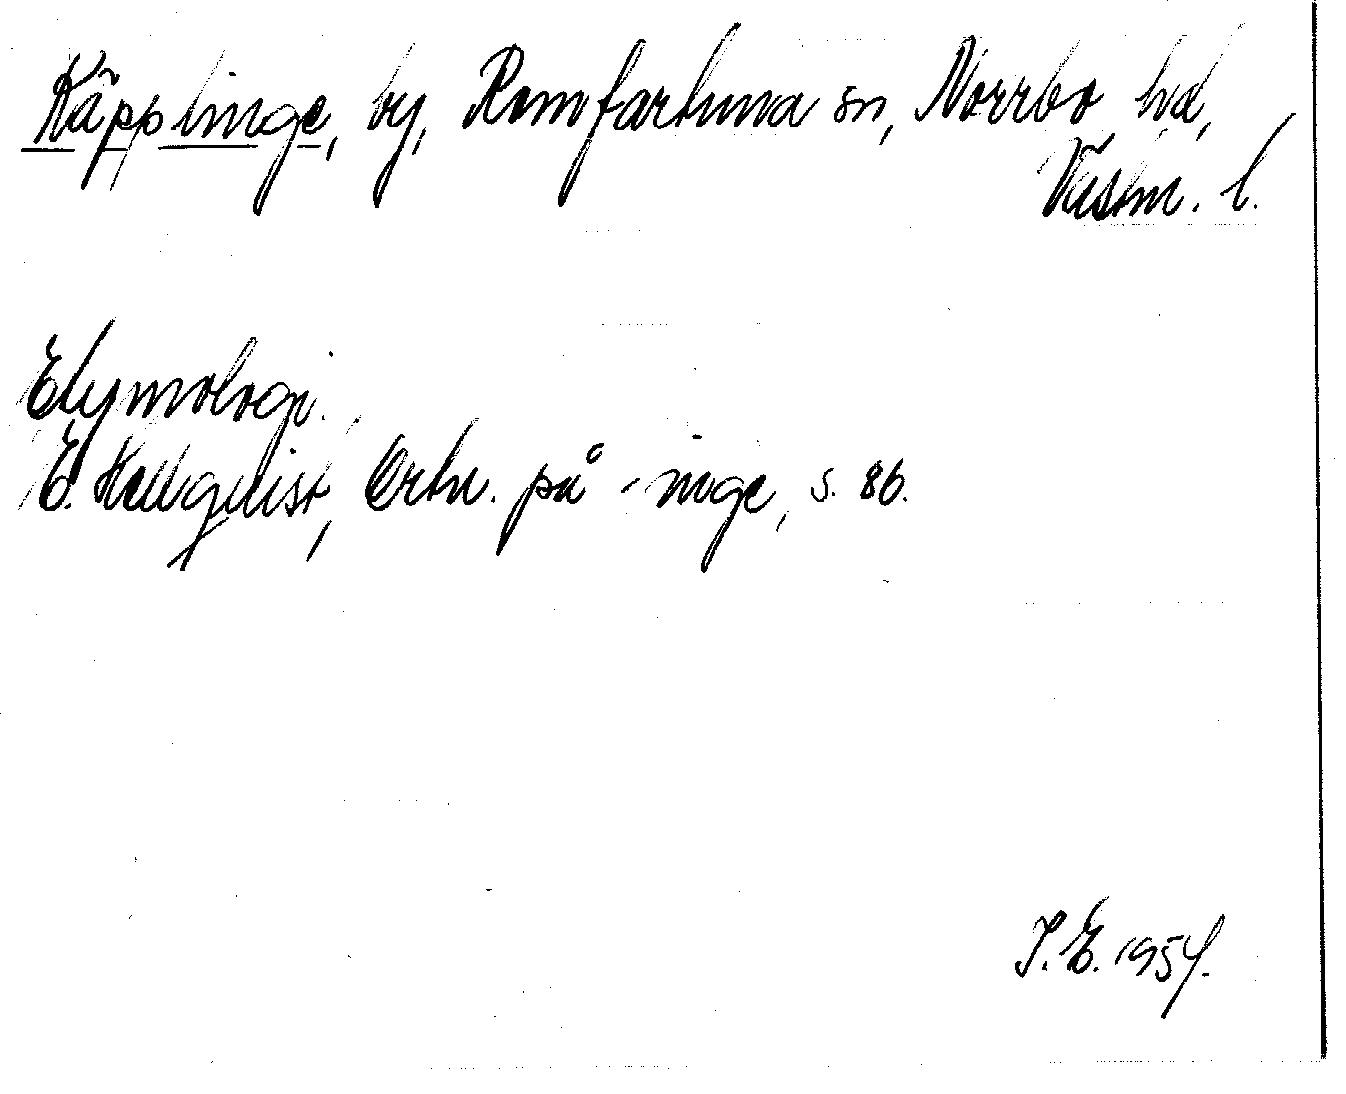 Käpplinge, by, Romfartuna sn, Norrbo hd,
Västm. l.
Etymologi.
E. Hellquist, Ortn. på -inge, s. 86.
I. E. 1954.